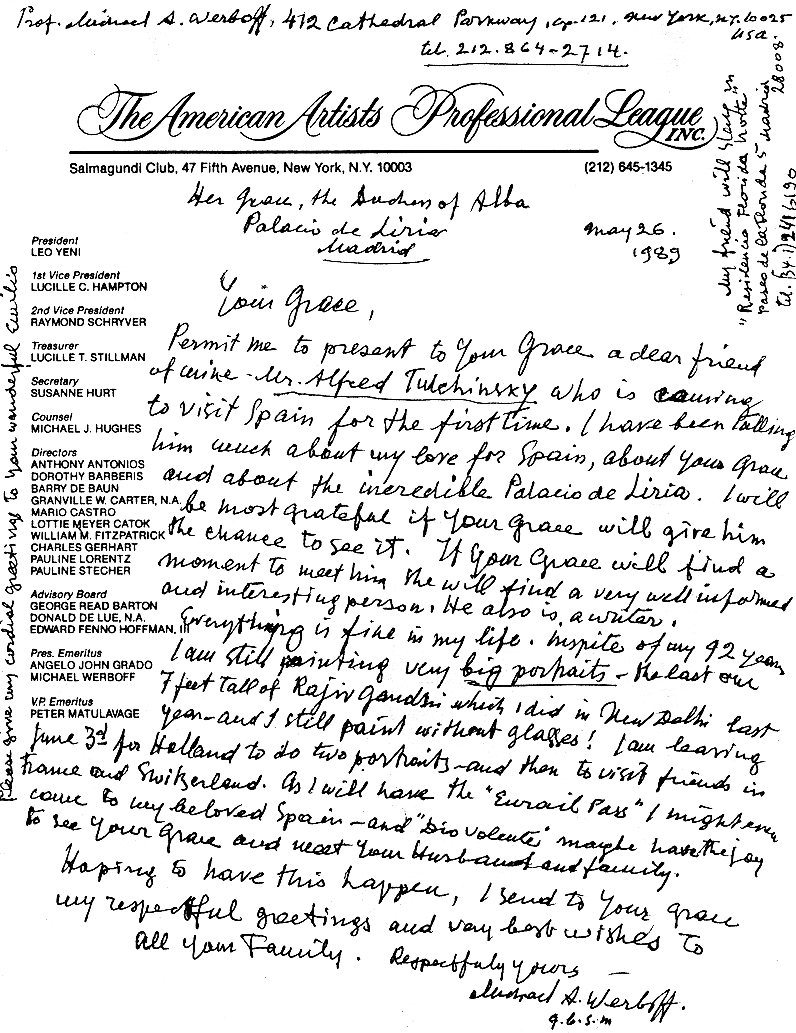 Prof. Michael A. Werboff, 412 Cathedral Parkway, ap. 121, New York, N.Y. 10025
USA.
tel. 212.864-2714.
The American Artists Professional League
INC.
Salmagundi Club, 47 Fifth Avenue, New York, N.Y. 10003
(212) 645-1345
My friend will stay in
"Residencia Florida Norte"
Paseo de la Florida 5 Madrid
28008
tel. (34.1) 241 6190
Her Grace, the Duchess of Alba
Palacio de Liria
Madrid
May 26.
1989
President
LEO YENI
1st Vice President
LUCILLE C. HAMPTON
2nd Vice President
RAYMOND SCHRYVER
Treasurer
LUCILLE T. STILLMAN
Secretary
SUSANNE HURT
Counsel
MICHAEL J. HUGHES
Directors
ANTHONY ANTONIOS
DOROTHY BARBERIS
BARRY DE BAUN
GRANVILLE W. CARTER, N.A.
MARIO CASTRO
LOTTIE MEYER CATOK
WILLIAM M. FITZPATRICK
CHARLES GERHART
PAULINE LORENTZ
PAULINE STECHER
Advisory Board
GEORGE READ BARTON
DONALD DE LUE, N.A.
EDWARD FENNO HOFFMAN, III
Pres. Emeritus
ANGELO JOHN GRADO
MICHAEL WERBOFF
V.P. Emeritus
PETER MATULAVAGE
Your Grace,
Permit me to present to Your Grace a dear friend
of mine - Mr. Alfred Tulchinsky who is
to visit Spain for the first time. I have been talling
him much about my love for Spain, about Your Grace
and about the incredible Palacio de Liria. I will
be most grateful if Your Grace will give him
the chance to see it. If Your Grace will find a
moment to meet him she will find a very well informed
and interesting person. He also is a writer.
Everything is fine in my life. Inspite of my 92 years
I am still painting very big portraits - the last one
7 feet tall of Rajiv Gandhi which I did in New Delhi last
year - and I still paint without glasses! I am leaving
June 3d for Holland to do two portraits - and then to visit friends in
France and Switzerland. As I will have the "Eurail Pass" I might even
come to my beloved Spain - and "Dio volente" maybe have the joy
to see Your Grace and meet Your Husband and family.
Hoping to have this happen, I send to Your Grace
my respectful greetings and very best wishes to
all your Family. Respectfuly yours -
Michael A. Werboff.
g.b.s.m
Please give my cordial greetings to Your wonderful